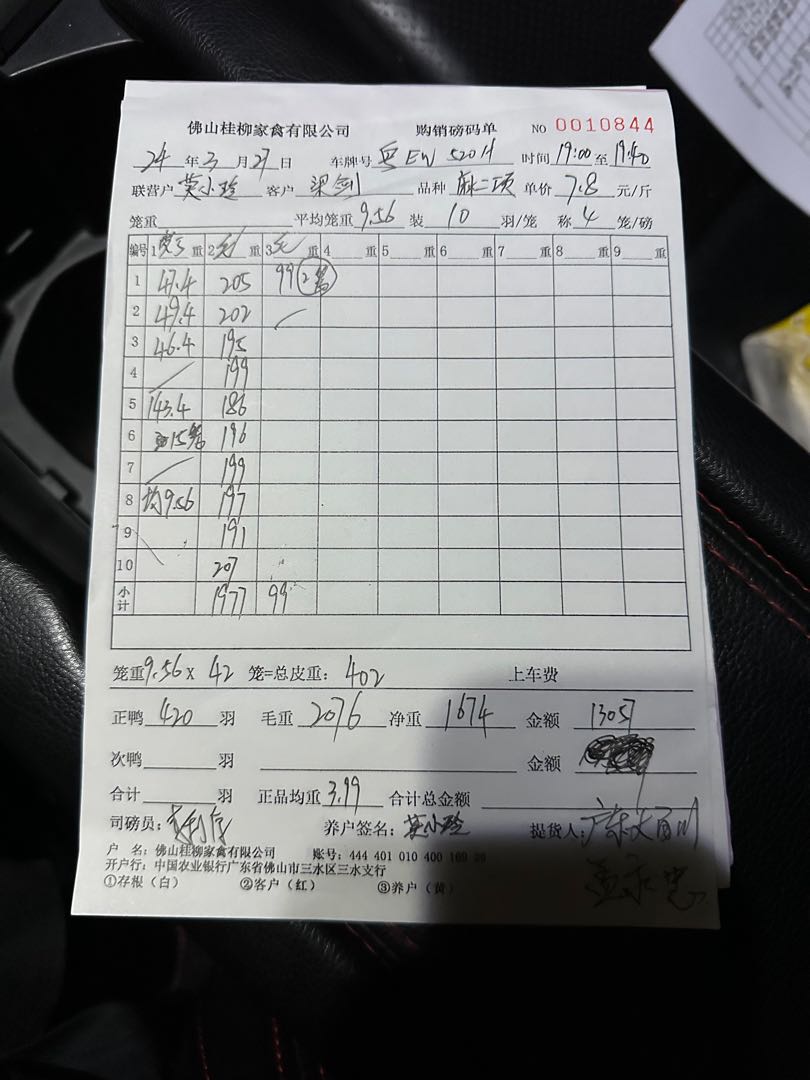 佛山桂柳家禽有限公司 购销磅码单 NO 0010844
24年3月27日 车牌号 粤EW 520H 时间19:00至19:40
联营户 莫小玲 客户 梁剑 品种 麻二项 单价 7.8 元/斤
笼重 平均笼重9.56 装 10 羽/笼 称 4 笼/磅
编号 1 重 2 毛 重 3 毛 重 4 重 5 重 6 重 7 重 8 重 9 重
1 47.4 205 99 2笼
2 49.4 202
3 46.4 195
4 199
5 143.4 186
6 15笼 196
7 199
8 均9.56 197
9 191
10 207
小计 1977 99
笼重9.56 X 42 笼=总皮重: 402 上车费
正鸭 420 羽 毛重 2076 净重 1674 金额 13057
次鸭 羽 金额
合计 羽 正品均重 3.99 合计总金额
司磅员: 养户签名: 莫小玲 提货人: 广东
户 名: 佛山桂柳家禽有限公司 账号: 444 401 010 400 169
开户行: 中国农业银行广东省佛山市三水区三水支行
①存根(白) ②客户(红) ③养户(黄)